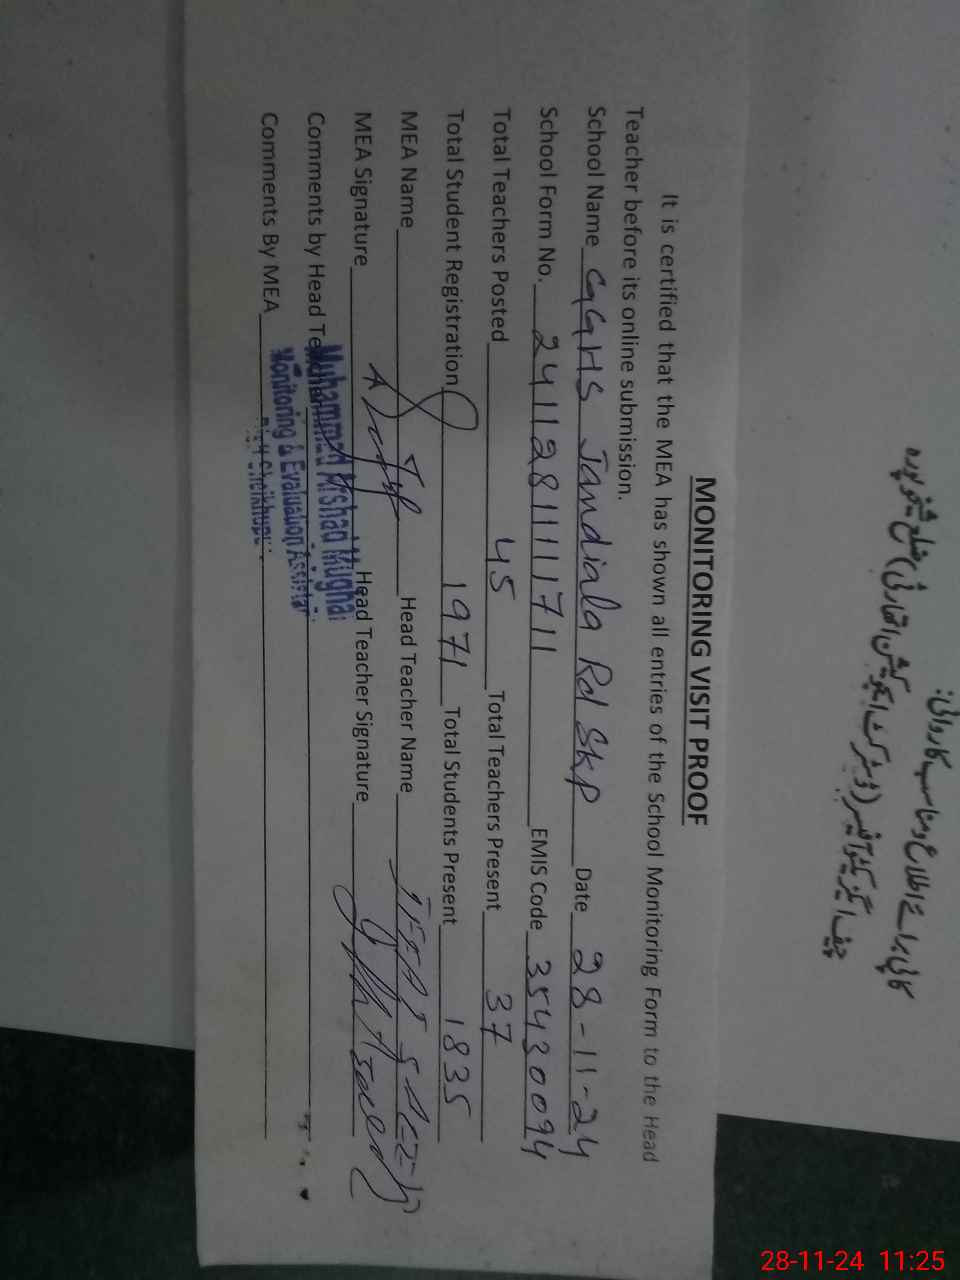 کاپی برائے اطلاع و مناسب کاروائی:
چیف ایگزیکٹو آفیسر (ڈسٹرکٹ ایجوکیشن اتھارٹی) ضلع شیخوپورہ
MONITORING VISIT PROOF
It is certified that the MEA has shown all entries of the School Monitoring Form to the Head
Teacher before its online submission.
School Name GGHS Jandiala Rd SKP Date 28-11-24
School Form No. 241128111711 EMIS Code 35430094
Total Teachers Posted 45 Total Teachers Present 37
Total Student Registration 1971 Total Students Present 1835
MEA Name Head Teacher Name
MEA Signature Head Teacher Signature
Comments by Head Teacher
Muhammad Arshad Mughal
Monitoring & Evaluation Assistant
Comments By MEA
28-11-24 11:25